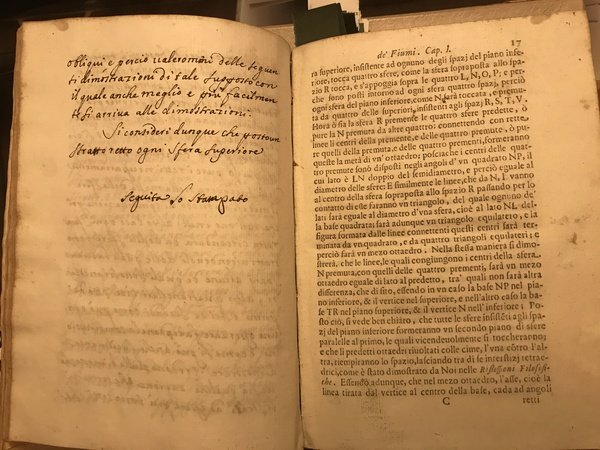 obliqui e perciò ualeromoni delle seguen
ti dimostrazioni di tale supposto con
il quale anche meglio e più facilmen
te si arriva alle dimostrazioni.
Si consideri dunque che posto un
stratto retto ogni sfera superiore
Seguita lo Stampato
de' Fiumi. Cap. I. 17
ra superiore, insistente ad ognuno degli spazj del piano infe-
riore, tocca quattro sfere, come la sfera soprapposta allo spa-
zio R tocca, e s'appoggia sopra le quattro L, N, O, P; e per-
che sono posti intorno ad ogni sfera quattro spazj, perciò
ogni sfera del piano inferiore, come N sarà toccata, e premu-
ta da quattro delle superiori, insistenti agli spazj R, S, T, V.
Hora ò sia la sfera R premense le quattro sfere predette, ò
pure la N premuta da altre quattro: connettendo con rette,
le linee li centri della premente, e delle quattro premute, ò pu-
re quelli della premuta, e delle quattro prementi, formeranno
queste la metà di vn' ottaedro; posciache i centri delle quat-
tro premute sono disposti negli angoli d' vn quadrato NP, il
cui lato è LN doppio del semidiametro, e perciò eguale al
diametro delle sfere: E similmente le linee, che da N, L vanno
al centro della sfera soprapposta allo spazio R passando per lo
contatto di esse faranno vn triangolo, del quale ognuno de'
lati sarà eguale al diametro d'vna sfera, cioè al lato NL del-
la base quadrata; sarà adunque vn triangolo equilatero, e la
figura formata dalle linee connettenti questi centri sarà ter-
minata da vn quadrato, e da quattro triangoli equilateri; e
perciò sarà vn mezo ottaedro. Nella stessa maniera si dimo-
strerà, che le linee, le quali congiungono i centri della sfera
N premuta, con quelli delle quattro prementi, sarà vn mezo
ottaedro eguale di lato al predetto, tra' quali non sarà altra
differenza, che di sito, essendo in vn caso la base NP nel piano
inferiore, & il vertice nel superiore, e nell'altro caso la ba-
se TR nel piano superiore, & il vertice N nell' inferiore: Po-
sto ciò, si vede ben chiaro, che tutte le sfere insistēti agli spa-
zj del piano inferiore formeranno vn secondo piano di sfere
parallele al primo, le quali vicendeuolmente si toccheranno;
e che li predetti ottaedri riuoltati colle cime, l'vna cōtro l'al-
tra, riempiranno lo spazio, lasciando tra di se interstizj tetrae-
drici, come è stato dimostrato da Noi nelle Riflessioni Filosofi-
che. Essendo adunque, che nel mezo ottaedro, l'asse, cioè la
linea tirata dal vertice al centro della base, cada ad angoli
C retti